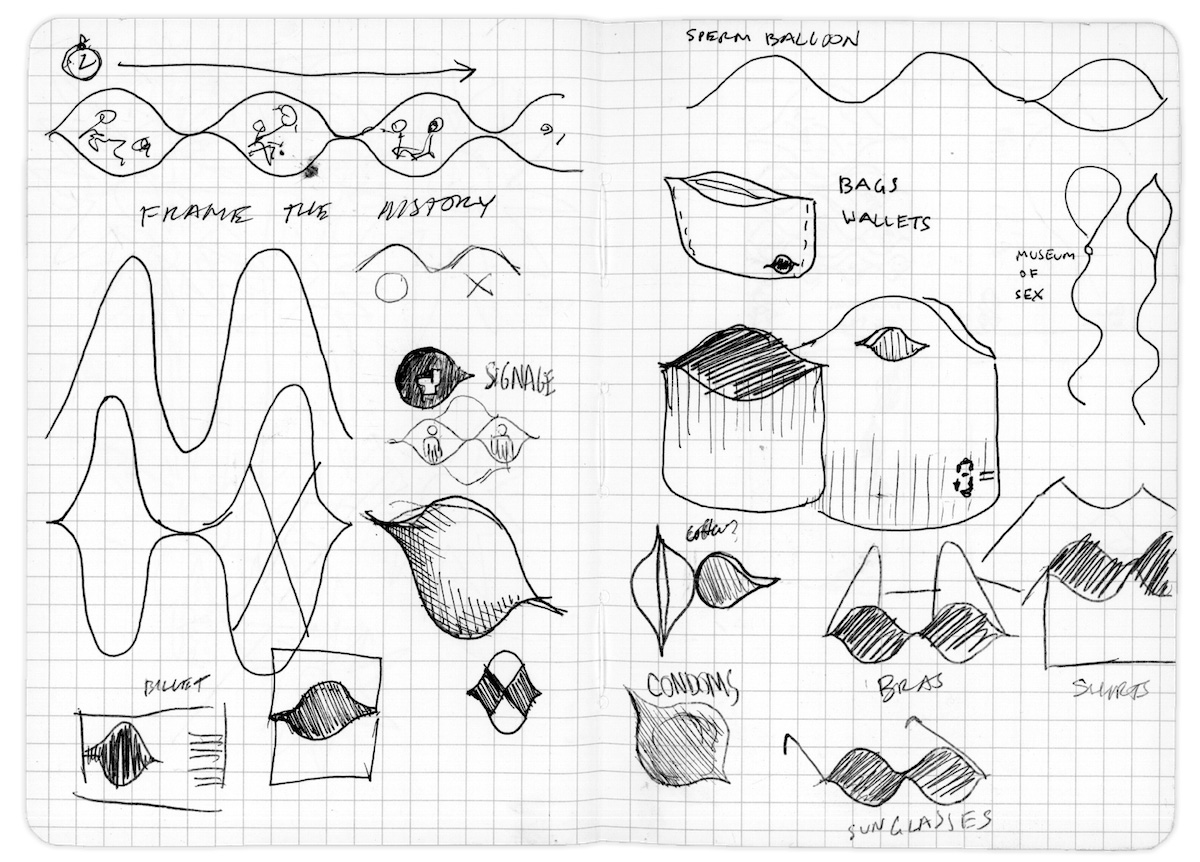 FRAME THE HISTORY
SIGNAGE
BILLET
SPERM BALLOON
BAGS
WALLETS
MUSEUM
OF
SEX
CONDOMS
BRAS
SHIRTS
SUNGLASSES